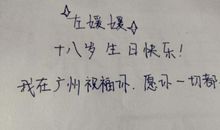 左媛媛
十八岁生日快乐!
我在广州祝福你.愿你一切都